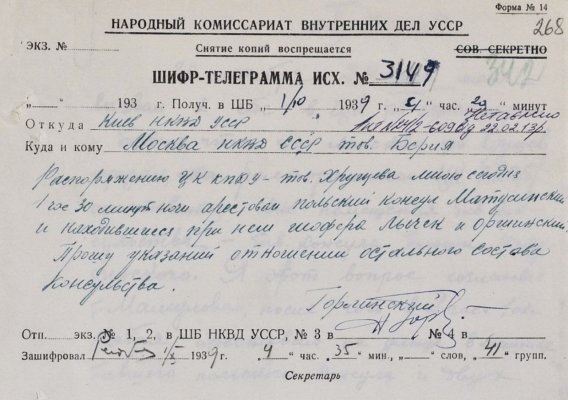 Форма № 14
268
НАРОДНЫЙ КОМИССАРИАТ ВНУТРЕННИХ ДЕЛ УССР
ЭКЗ. №
Снятие копий воспрещается
СОВ. СЕКРЕТНО
ШИФР-ТЕЛЕГРАММА ИСХ. № 3149
„ “ 193 г. Получ. в ШБ „1/10 “ 1939 г. час. минут
Откуда Киев НКВД УССР
Куда и кому Москва НКВД СССР тов. Берия
Распоряжению ЦК КП/б/У – тов. Хрущева мною сегодня
1 час 30 минут ночи арестован польский консул Матусинский
и находившиеся при нем шофера Лычек и Оршинский.
Прошу указаний отношении остального состава
консульства.
Горлинский
Отп. экз. № 1, 2, в ШБ НКВД УССР, № 3 в № 4 в
Зашифровал 1/X 1939 г. 4 час. 35 мин., слов, 41 групп.
Секретарь